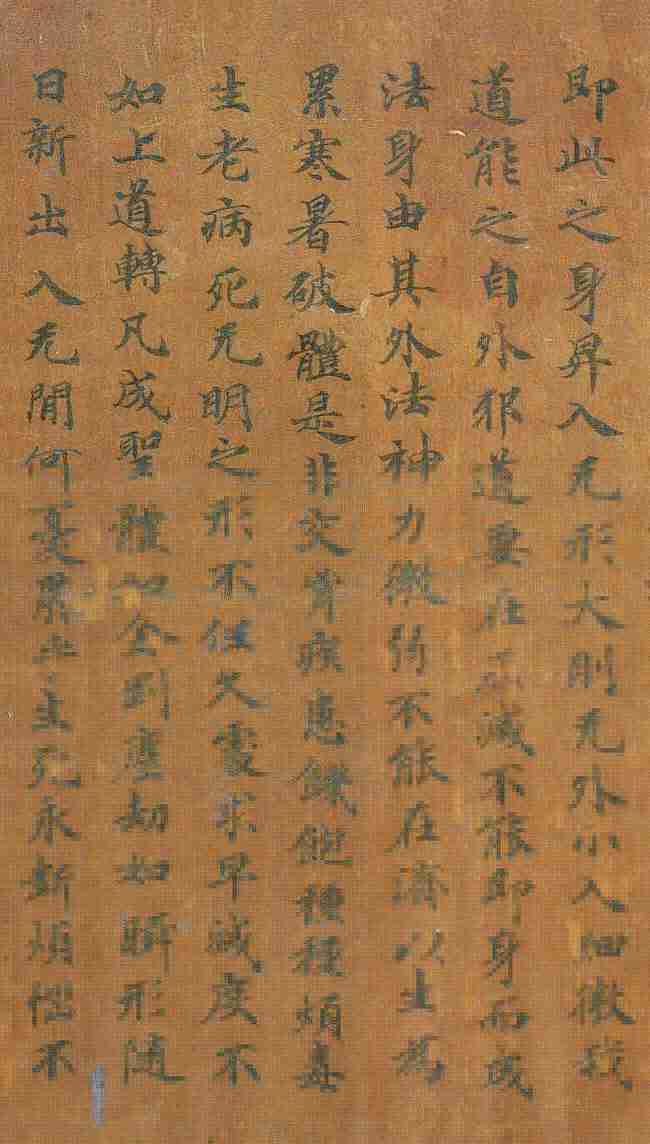 即此之身昇入无形大則无外小入細微我
道能之自外邪道要在 滅不能即身而成
法身由其外法神力微弱不能在 以生為
累寒暑破體是非交 疾患飢飽種種煩毒
生老病死无明之形不任久處求早滅度不
如上道轉凡成聖體 金剛塵劫如瞬形隨
日新出入无閒何憂 生死永斷煩惱不